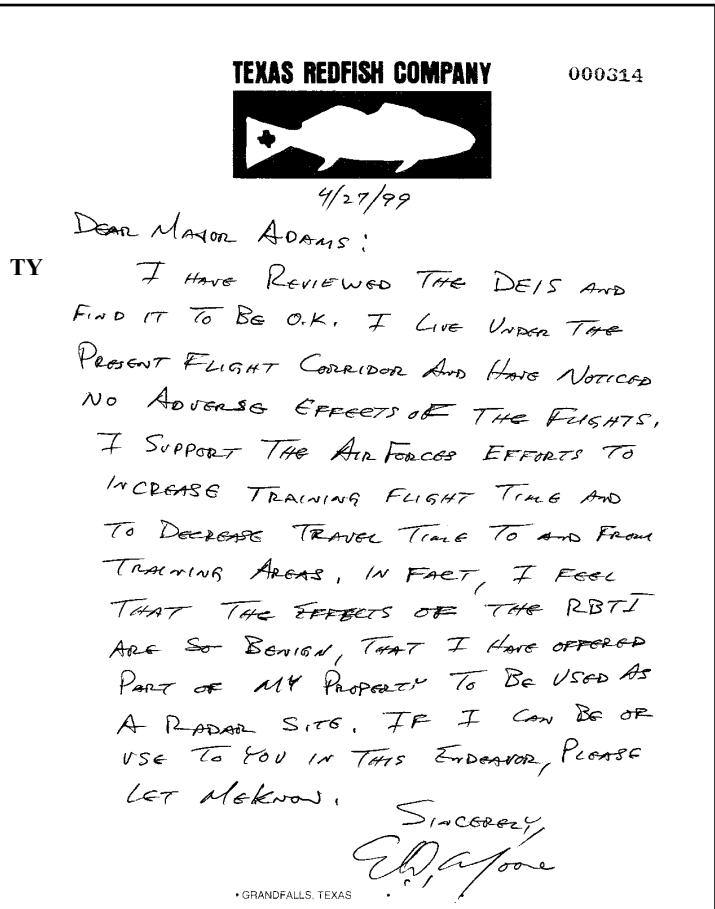 TEXAS REDFISH COMPANY 000314
4/27/99
DEAR MAJOR ADAMS:
TY
I HAVE REVIEWED THE DEIS AND
FIND IT TO BE O.K. I LIVE UNDER THE
PRESENT FLIGHT CORRIDOR AND HAVE NOTICED
NO ADVERSE EFFECTS OF THE FLIGHTS.
I SUPPORT THE AIR FORCES EFFORTS TO
INCREASE TRAINING FLIGHT TIME AND
TO DECREASE TRAVEL TIME TO AND FROM
TRAINING AREAS. IN FACT, I FEEL
THAT THE EFFECTS OF THE RBTI
ARE SO BENIGN, THAT I HAVE OFFERED
PART OF MY PROPERTY TO BE USED AS
A RADAR SITE. IF I CAN BE OF
USE TO YOU IN THIS ENDEAVOR, PLEASE
LET ME KNOW.
SINCERELY,
Moore
• GRANDFALLS, TEXAS •